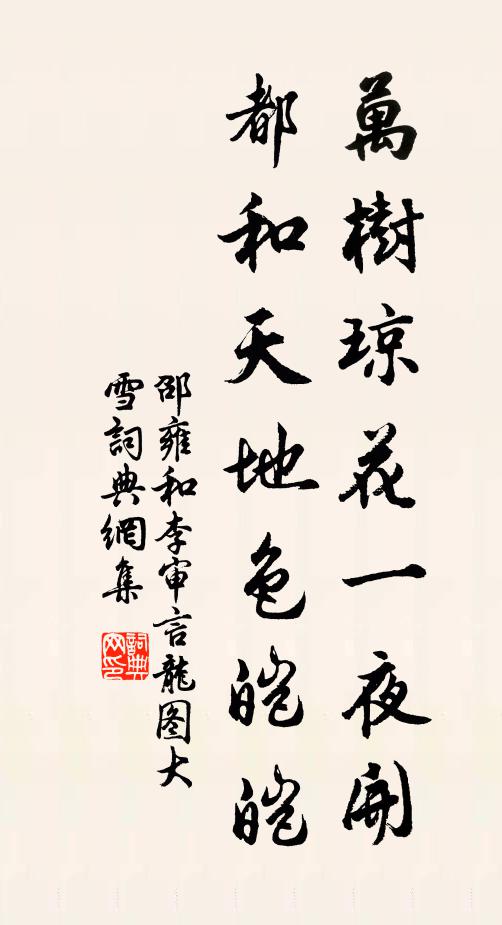 萬樹琼花一夜開
都和天地色皚皚
邵雍和李审言龍图大
雪詞典網集